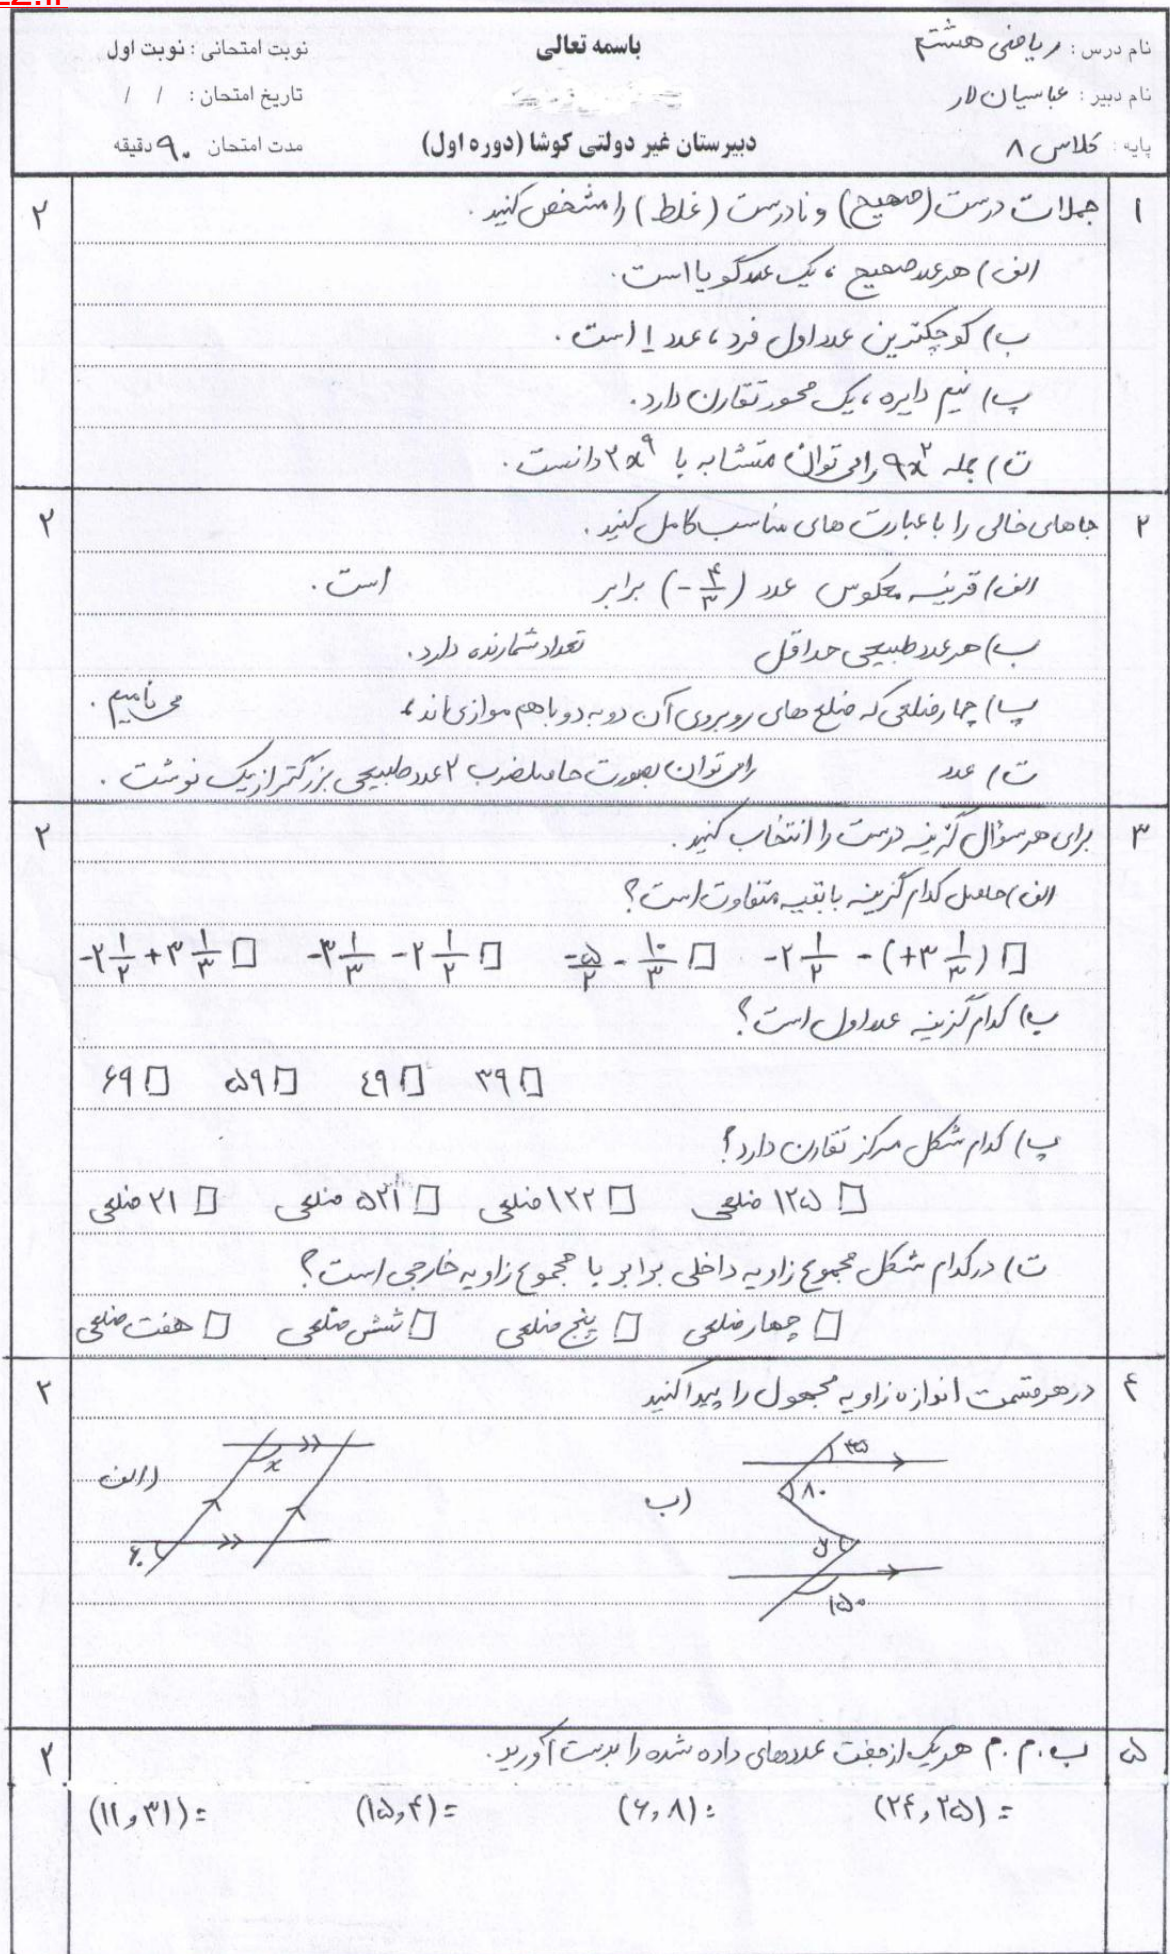 نام درس : ریاضی هشتم
باسمه تعالی
نوبت امتحانی : نوبت اول
نام دبیر : عباسیان لار
تاریخ امتحان : / /
پایه : کلاس ۸
دبیرستان غیر دولتی کوشا (دوره اول)
مدت امتحان ۹۰ دقیقه
۱ جملات درست (صحیح) و نادرست (غلط) را مشخص کنید . ۲
الف) هر عدد صحیح ، یک عدد گویا است .
ب) کوچکترین عدد اول فرد ، عدد ۱ است .
پ) نیم دایره ، یک محور تقارن دارد .
ت) جمله ۹x^۲ را می توان متشابه با ۲x^۹ دانست .
۲ جاهای خالی را با عبارت های مناسب کامل کنید . ۲
الف) قرینه معکوس عدد (-۴/۳) برابر است .
ب) هر عدد طبیعی حداقل تعداد شمارنده دارد .
پ) چهارضلعی که ضلع های روبروی آن دو به دو باهم موازی اند ، می نامیم .
ت) عدد را می توان بصورت حاصلضرب ۲ عدد طبیعی بزرگتر از یک نوشت .
۳ برای هر سؤال گزینه درست را انتخاب کنید . ۲
الف) حاصل کدام گزینه با بقیه متفاوت است ؟
□ -۲ ۱/۲ - (+۳ ۱/۳) □ -۵/۲ - ۱۰/۳ □ -۳ ۱/۳ - ۲ ۱/۲ □ -۲ ۱/۲ + ۳ ۱/۳
ب) کدام گزینه عدد اول است ؟
□ ۳۹ □ ۴۹ □ ۵۹ □ ۶۹
پ) کدام شکل مرکز تقارن دارد ؟
□ ۱۲۵ ضلعی □ ۱۲۲ ضلعی □ ۵۲۱ ضلعی □ ۲۱ ضلعی
ت) در کدام شکل مجموع زاویه داخلی برابر با مجموع زاویه خارجی است ؟
□ چهار ضلعی □ پنج ضلعی □ شش ضلعی □ هفت ضلعی
۴ در هر قسمت اندازه زاویه مجهول را پیدا کنید ۲
الف)
x
۶۰
ب)
۳۵
۸۰
y
۱۵۰
۵ ب . م . م هر یک از جفت عددهای داده شده را بدست آورید . ۲
(۲۴ , ۲۵) = (۶ , ۸) = (۱۵ , ۴) = (۱۱ , ۳۱) =